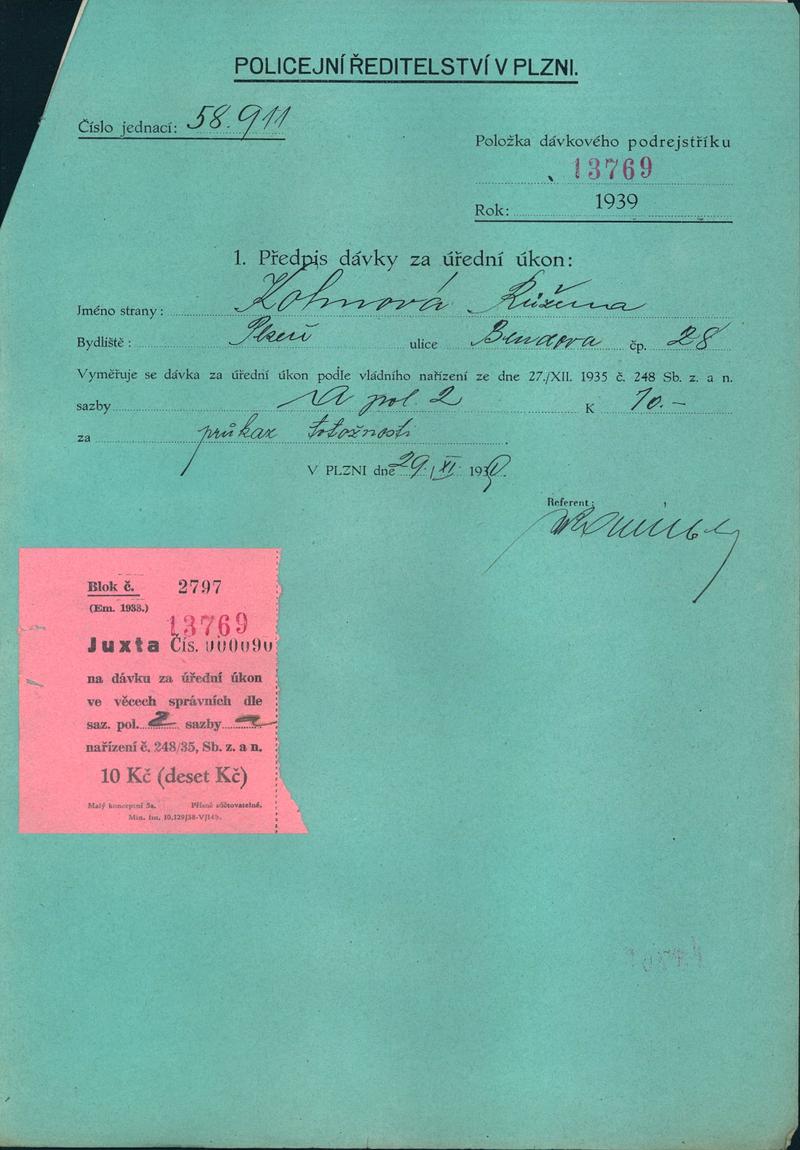 POLICEJNÍ ŘEDITELSTVÍ V PLZNI.
Číslo jednací: 58.911
Položka dávkového podrejstříku
13769
Rok: 1939
1. Předpis dávky za úřední úkon:
Jméno strany: Kohnová Růžena
Bydliště: Plzeň ulice Bendova čp. 28
Vyměřuje se dávka za úřední úkon podle vládního nařízení ze dne 27./XII. 1935 č. 248 Sb. z. a n.
sazby A pol 2 K 10.-
za průkaz totožnosti
V PLZNI dne 29./XI 1939.
Referent:
Blok č. 2797
(Em. 1938.)
13769
Juxta Čís. 000090
na dávku za úřední úkon
ve věcech správních dle
saz. pol. 2 sazby a
nařízení č. 248/35, Sb. z. a n.
10 Kč (deset Kč)
Malý konceptní 5a. Přísně zúčtovatelné.
Min. fin. 10.129/38-V/14b.